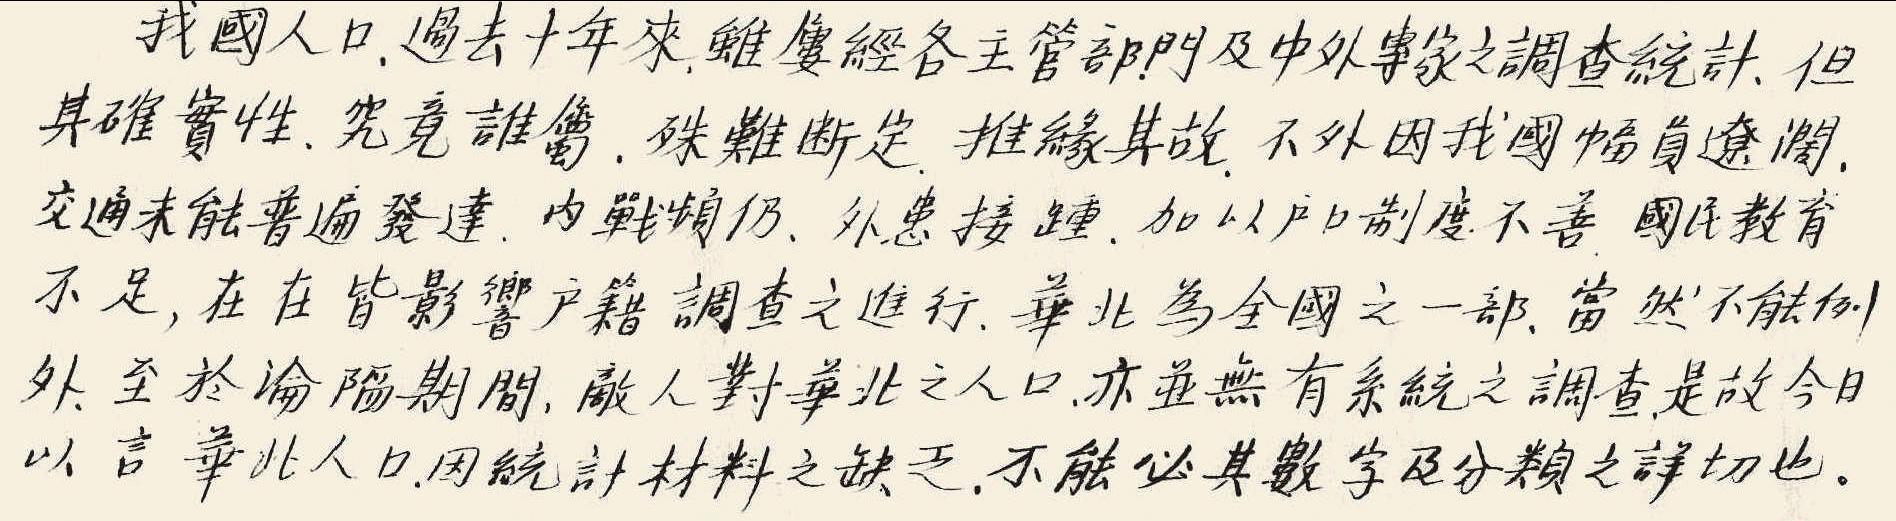 我國人口、過去十年來、雖屢經各主管部門及中外專家之調查統計、但
其確實性、究竟誰屬、殊難断定、推緣其故、不外因我國幅員遼濶、
交通未能普遍發達、内戰頻仍、外患接踵、加以户口制度不善、國民教育
不足,在在皆影響户籍調查之進行、華北為全國之一部、當然不能例
外、至於淪陷期間、敵人對華北之人口、亦並無有系統之調查、是故今日
以言華北人口、因統計材料之缺乏、不能必其數字及分類之詳切也。